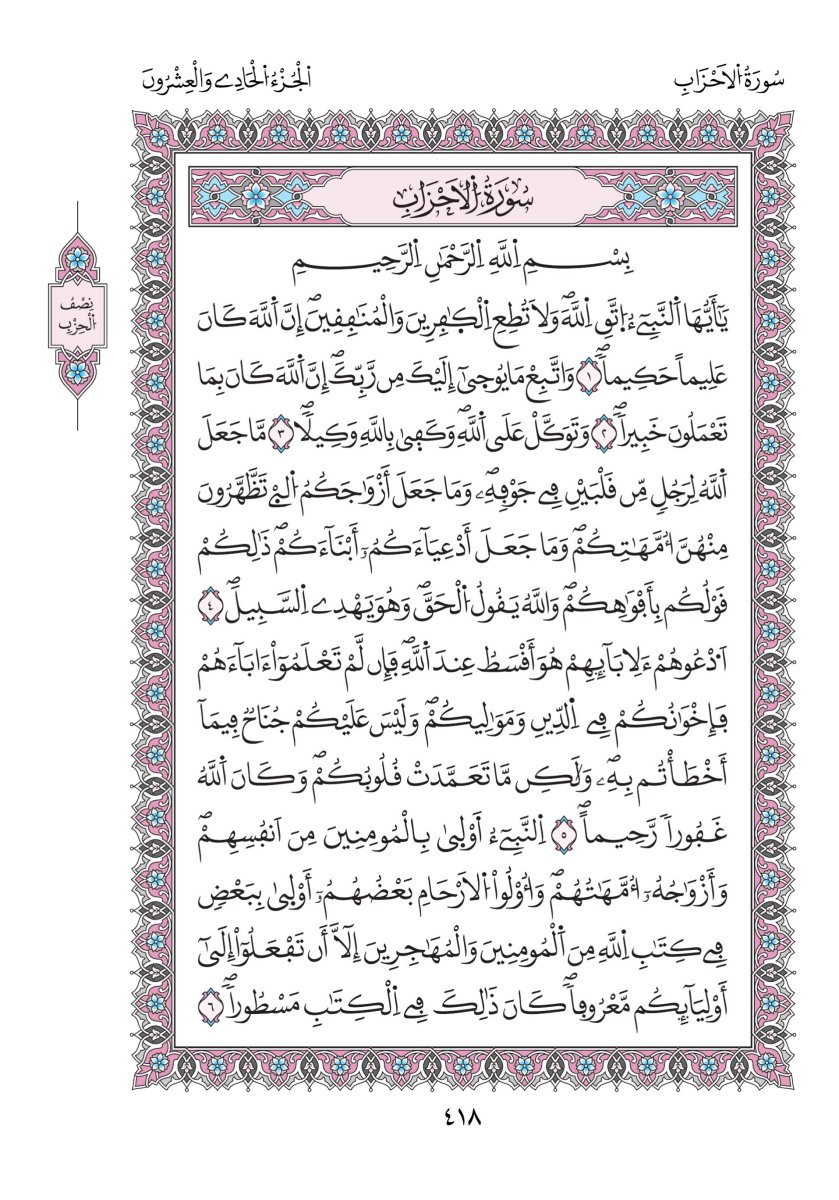 سُورَةُ اُ۬لَاحْزَابِ
اَ۬لْجُزْءُ اُ۬لْحَادِے وَالْعِشْرُونَ
سُورَةُ اُ۬لَاحْزَابِ
بِسْمِ اِ۬للَّهِ اِ۬لرَّحْمَٰنِ اِ۬لرَّحِيمِ
يَٰٓأَيُّهَا اَ۬لنَّبِےٓءُ اِ۪تَّقِ اِ۬للَّهَۖ وَلَا تُطِعِ اِ۬لْكٰ۪فِرِينَ وَالْمُنَٰفِقِينَۖ إِنَّ اَ۬للَّهَ كَانَ
عَلِيماً حَكِيماٗۖ ١ وَاتَّبِعْ مَا يُوح۪يٰٓ إِلَيْكَ مِن رَّبِّكَۖ إِنَّ اَ۬للَّهَ كَانَ بِمَا
تَعْمَلُونَ خَبِيراٗۖ ٢ وَتَوَكَّلْ عَلَي اَ۬للَّهِۖ وَكَف۪يٰ بِاللَّهِ وَكِيلاٗۖ ٣ مَّا جَعَلَ
اَ۬للَّهُ لِرَجُلٖ مِّن قَلْبَيْنِ فِے جَوْفِهِۦۖ وَمَا جَعَلَ أَزْوَٰجَكُمُ اُ۬لَّٰٓےْ تَظَّهَّرُونَ
مِنْهُنَّ أُمَّهَٰتِكُمْۖ وَمَا جَعَلَ أَدْعِيَآءَكُمُۥٓ أَبْنَآءَكُمْۖ ذَٰلِكُمْ
قَوْلُكُم بِأَفْوَٰهِكُمْۖ وَاللَّهُ يَقُولُ اُ۬لْحَقَّۖ وَهُوَ يَهْدِے اِ۬لسَّبِيلَۖ ٤
اَ۟دْعُوهُمْ ءَلِابَآئِهِمْ هُوَ أَقْسَطُ عِندَ اَ۬للَّهِۖ فَإِن لَّمْ تَعْلَمُوٓاْ ءَابَآءَهُمْ
فَإِخْوَٰنُكُمْ فِے اِ۬لدِّينِ وَمَوَٰلِيكُمْۖ وَلَيْسَ عَلَيْكُمْ جُنَاحٞ فِيمَآ
أَخْطَأْتُم بِهِۦ وَلَٰكِن مَّا تَعَمَّدَتْ قُلُوبُكُمْۖ وَكَانَ اَ۬للَّهُ
غَفُوراٗ رَّحِيماًۖ ٥ اِ۬لنَّبِےٓءُ أَوْل۪يٰ بِالْمُومِنِينَ مِنَ اَنفُسِهِمْۖ
وَأَزْوَٰجُهُۥٓ أُمَّهَٰتُهُمْۖ وَأُوْلُواْ اُ۬لَارْحَامِ بَعْضُهُمُۥٓ أَوْل۪يٰ بِبَعْضٖ
فِے كِتَٰبِ اِ۬للَّهِ مِنَ اَ۬لْمُومِنِينَ وَالْمُهَٰجِرِينَ إِلَّآ أَن تَفْعَلُوٓاْ إِلَيٰٓ
أَوْلِيَآئِكُم مَّعْرُوفاٗۖ كَانَ ذَٰلِكَ فِے اِ۬لْكِتَٰبِ مَسْطُوراٗۖ ٦
نِصْفُ
اُ۬لْحِزْبِ
٤١٨